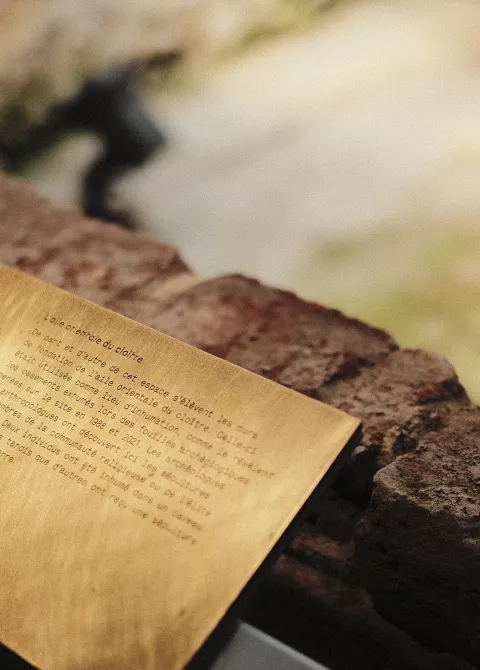 L'aile orientale du cloître
De part et d'autre de cet espace s'élèvent les murs
de fondation de l'aile orientale du cloître. Celle-ci
était utilisée comme lieu d'inhumation, comme le révèlent
les ossements exhumés lors des fouilles archéologiques
menées sur le site en 1988 et 2021. Les archéologues
anthropologues ont découvert ici les sépultures
mbres de la communauté religieuse ou de l'élite
Deux individus ont été inhumé dans un caveau
tandis que d'autres ont reçu une sépulture
erre.